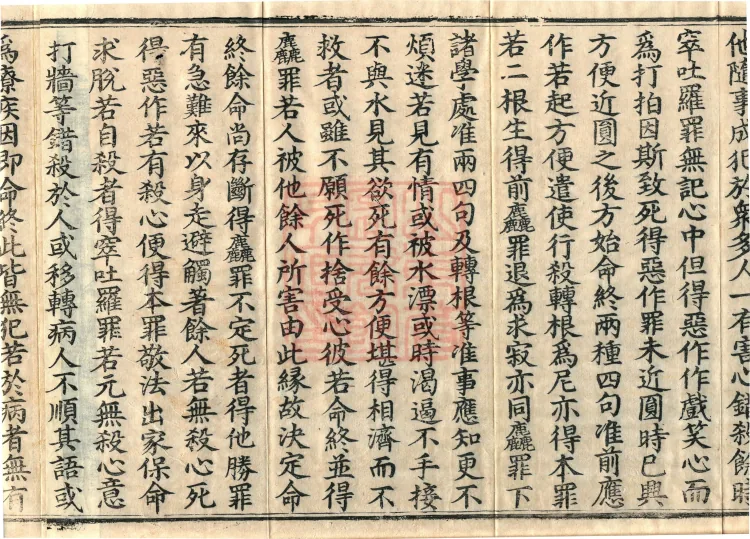 他隨事成犯於衆多人一有害心錯殺餘時
窣吐羅罪無記心中但得惡作作戲笑心而
爲打拍因斯致死得惡作罪未近圓時已興
方便近圓之後方始命終兩種四句准前應
作若起方便遣使行殺轉根爲尼亦得本罪
若二根生得前麤罪退爲求寂亦同麤罪下
諸學處准兩四句及轉根等准事應知更不
煩迷若見有情或被水漂或時渴逼不手接
不與水見其欲死有餘方便堪得相濟而不
救者或雖不願死作捨受心彼若命終並得
麤罪若人被他餘人所害由此緣故決定命
終餘命尚存斷得麤罪不定死者得他勝罪
有急難來以身走避觸著餘人若無殺心死
得惡作若有殺心便得本罪敬法出家保命
求脫若自殺者得窣吐羅罪若元無殺心意
打牆等錯殺於人或移轉病人不順其語或
爲療疾因即命終此皆無犯若於病者無有